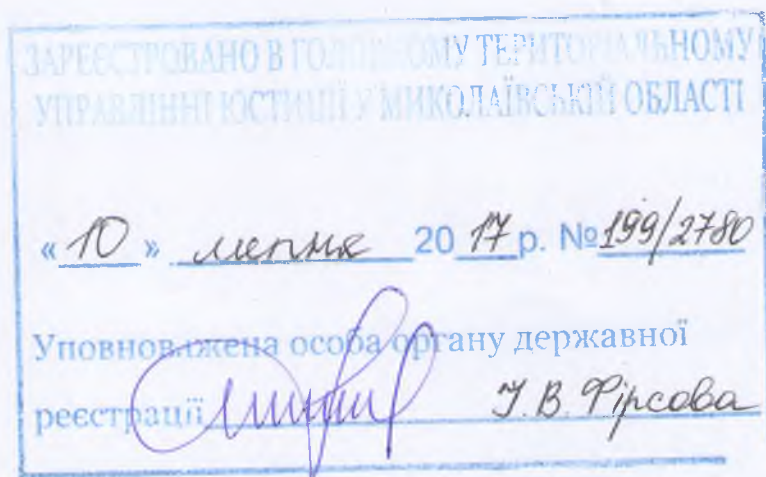 ЗАРЕЄСТРОВАНО В ГОЛОВНОМУ ТЕРИТОРІАЛЬНОМУ
УПРАВЛІННІ ЮСТИЦІЇ У МИКОЛАЇВСЬКІЙ ОБЛАСТІ
« 10 » липня 20 17 р. № 199/2780
Уповноважена особа органу державної
реєстрації І.В. Фірсова